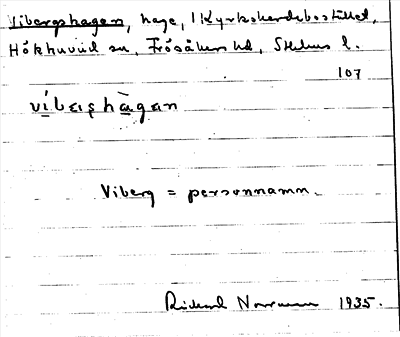 Vibergshagen, hage, 1 Kyrkoherdebostället,
Hökhuvud sn, Frösåkers hd, Sthlms l.
107
víbɛrshàgan
Viberg = personnamn.
Rickard Norrman 1935.